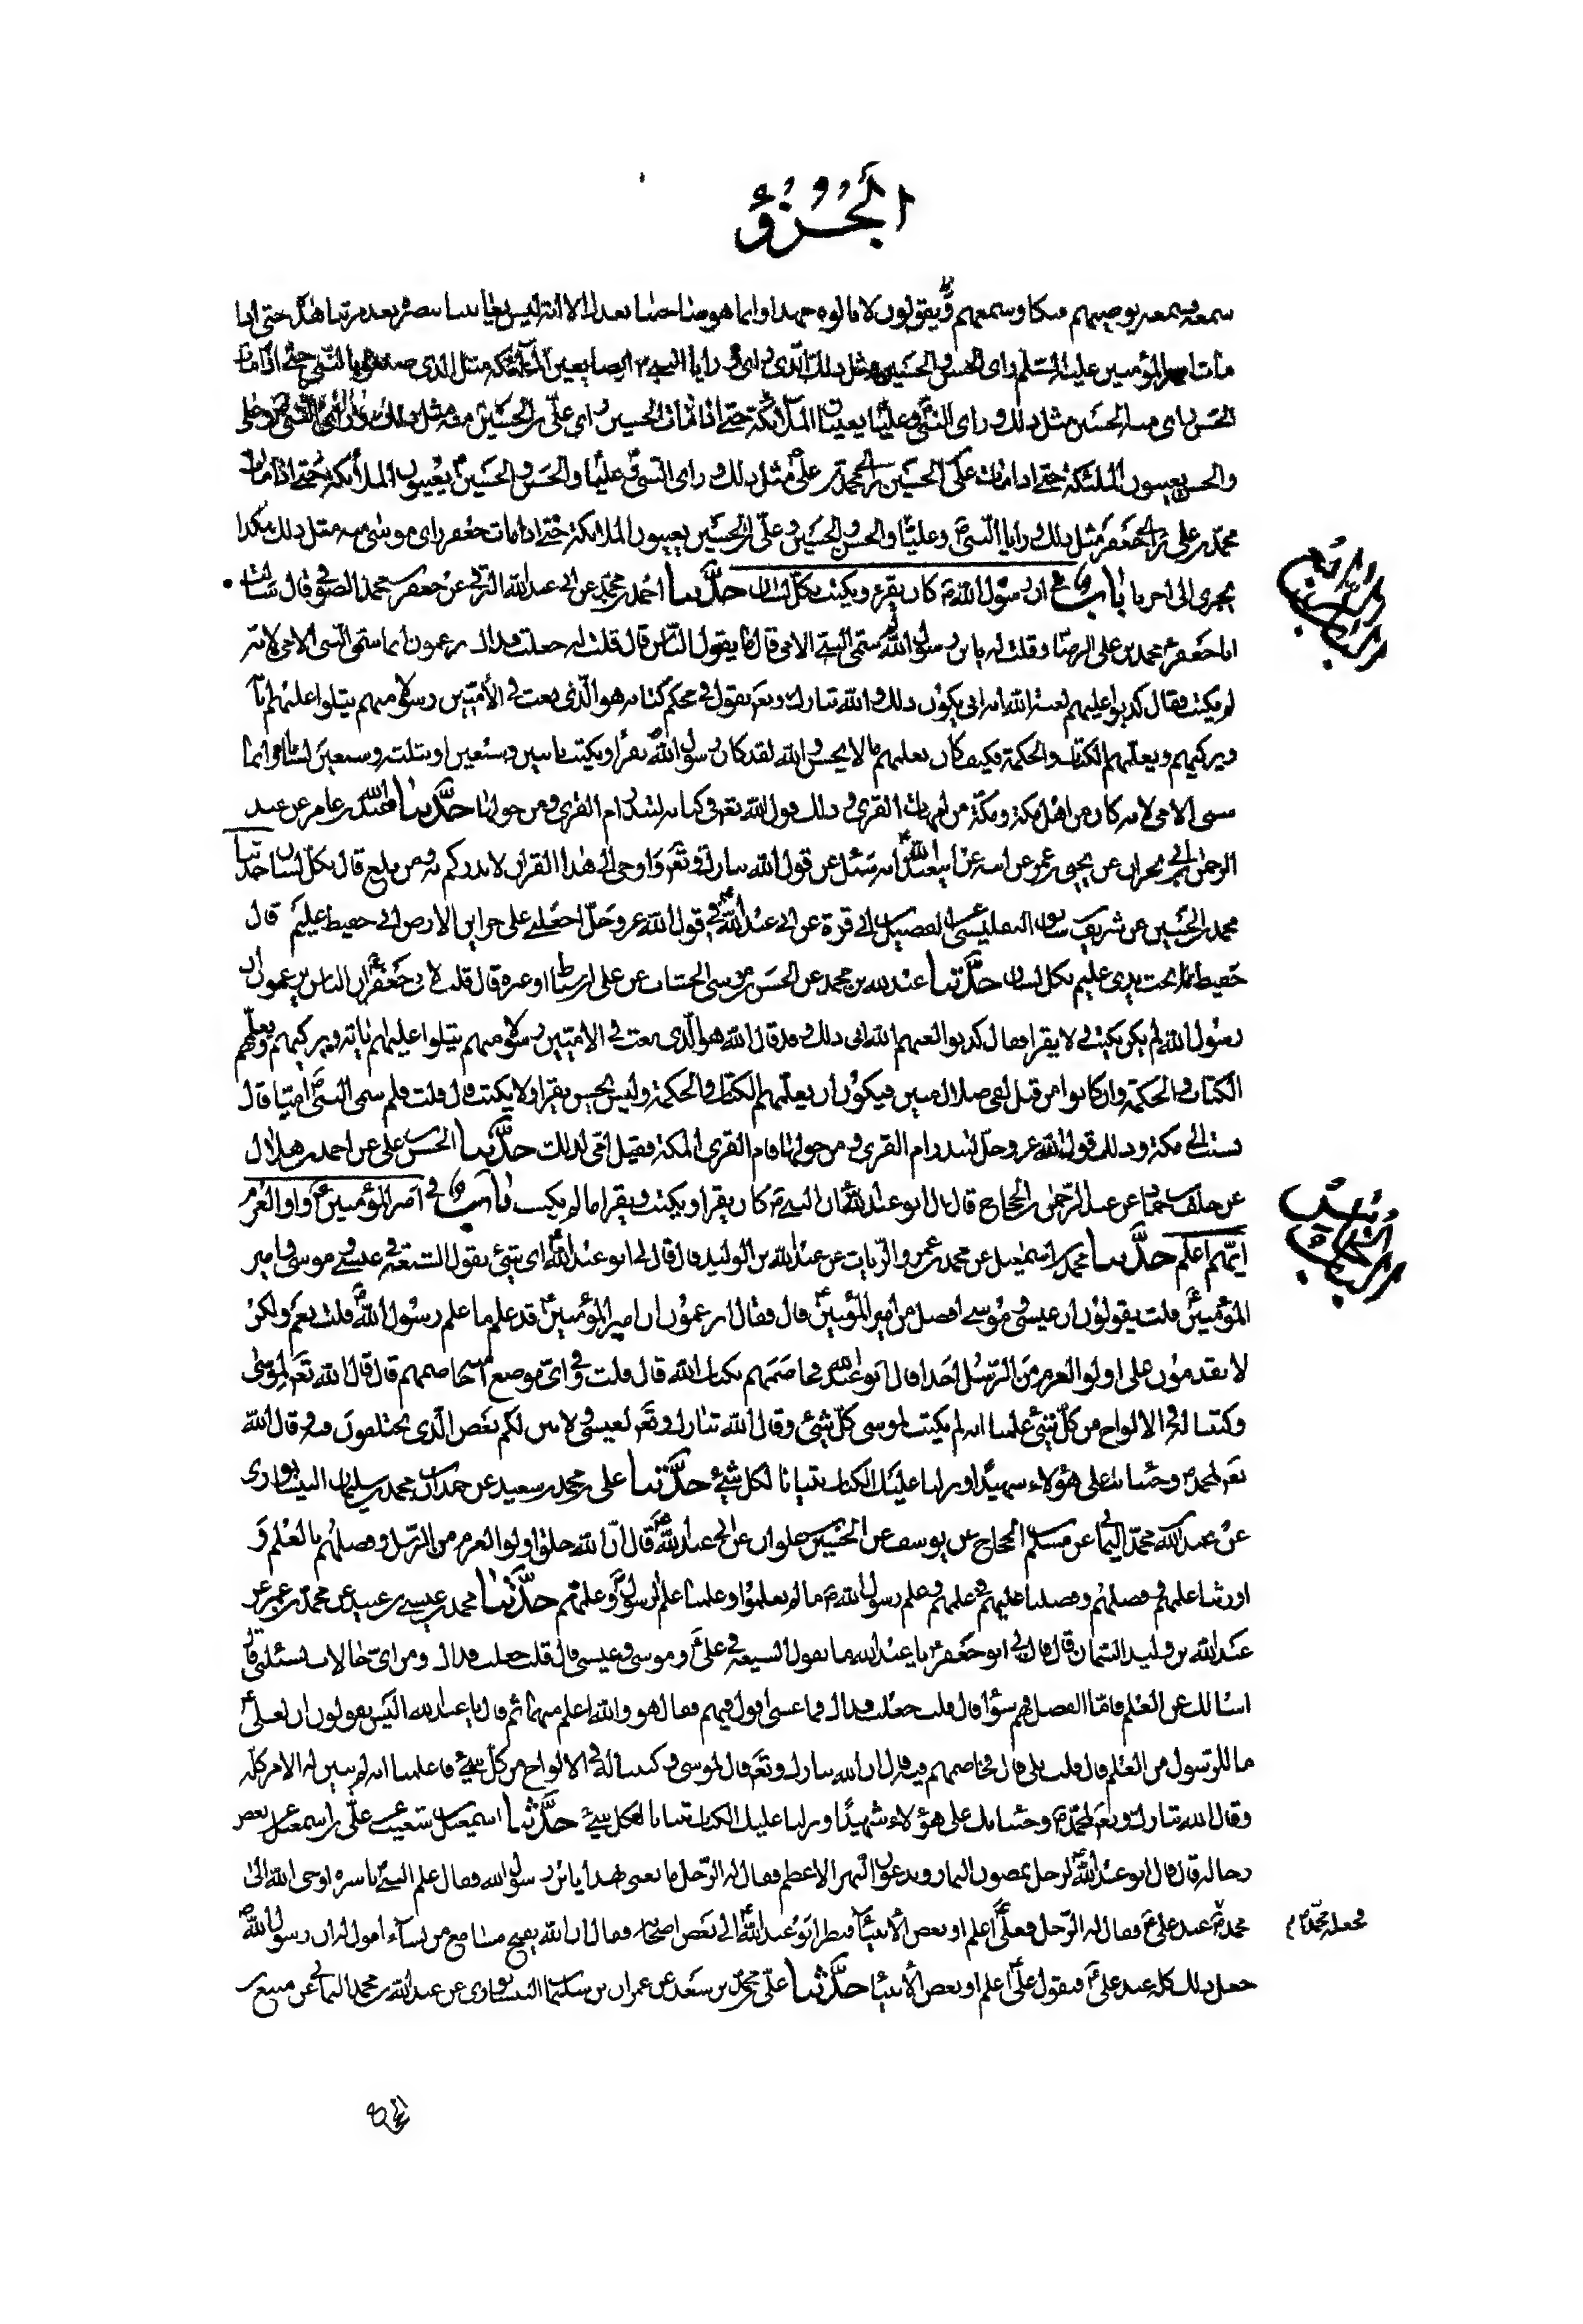 الجُزؤ
سمعه يسمعه يوصيهم ميكا وسمعهم ويقولون لا نالوه جهدا وانما هو صاحبنا بعدك الا انه ليس يعايننا ببصره بعد مرتنا هذه حتى اذا
مات امير المؤمنين عليه السلم راى الحسن والحسين مثل ذلك الذى راى ورايا النبى ايضا يعين الملئكة مثل الذى صنعوا بالنبى حتى اذا مات
الحسن راى منه الحسين مثل ذلك وراى النبى وعليا يعينان الملائكة حتى اذا مات الحسين راى على بن الحسين منه مثل ذلك وراى النبى وعلى
والحسن يعينون الملئكة حتى اذا مات على بن الحسين راى محمد بن على مثل ذلك وراى النبى وعليا والحسن والحسين يعينون الملائكة حتى اذا مات
محمد بن على راى جعفر مثل ذلك وراى النبى وعليا والحسن والحسين وعلى بن الحسين يعينون الملائكة حتى اذا مات جعفر راى موسى منه مثل ذلك هكذا
يجرى الى اخرنا باب فى ان رسول الله كان يقرء ويكتب بكل لسان حدثنا احمد بن محمد عن ابى عبد الله البرقى عن جعفر بن محمد الصوفى قال سالت
ابا جعفر محمد بن على الرضا وقلت له يابن رسول الله لم سمى النبى الامى قال ما يقول الناس قال قلت له جعلت فداك يزعمون انما سمى النبى الامى لانه
لم يكتب فقال كذبوا عليهم لعنة الله انى يكون ذلك والله تبارك وتعم يقول فى محكم كتابه هو الذى بعث فى الأميين رسولا منهم يتلوا عليهم ايا
ويزكيهم ويعلمهم الكتاب والحكمة فكيف كان يعلمهم ما لا يحسن والله لقد كان رسول الله يقرأ ويكتب باثنين وسبعين او بثلثة وسبعين لسانا وانما
سمى الامى لانه كان من اهل مكة ومكة من امهات القرى وذلك قول الله تعم فى كتابه لتنذر ام القرى ومن حولها حدثنا عبد الله بن عامر عن عبد
الرحمن بن ابى نجران عن يحيى بن عمر عن ابيه عن ابى عبد الله انه سئل عن قول الله تبارك وتعم واوحى الى هذا القران لانذركم به ومن بلغ قال بكل لسان حدثنا
محمد بن الحسين عن شريف بن سابق التفليسى الفضيل بن ابى قرة عن ابى عبد الله فى قول الله عز وجل اجعلنى على خزاين الارض انى حفيظ عليم قال
حفيظ بما تحت يدى عليم بكل لسان حدثنا عبد الله بن محمد عن الحسن بن موسى الخشاب عن على بن اسباط او غيره قال قلت لابى جعفر ان الناس يزعمون ان
رسول الله لم يكن يكتب ولا يقرا فقال كذبوا لعنهم الله انى ذلك وقد قال الله هو الذى بعث فى الاميين رسولا منهم يتلوا عليهم اياته ويزكيهم ويعلمهم
الكتاب والحكمة وان كانوا من قبل لفى ضلال مبين فيكون ان يعلمهم الكتاب والحكمة وليس يحسن يقرا ولا يكتب قال قلت فلم سمى النبى اميا قال
نسب الى مكة وذلك قول الله عز وجل لتنذر ام القرى ومن حولها فام القرى المكة فقيل امى لذلك حدثنا الحسن بن على عن احمد بن هلال
عن خلف بن حماد عن عبد الرحمن بن الحجاج قال قال ابو عبد الله ان النبى كان يقرا ويكتب ويقرا ما لم يكتب باب فى امير المؤمنين واولو العزم
ايهم اعلم حدثنا محمد بن اسمعيل عن محمد بن عمرو الزيات عن عبد الله بن الوليد قال قال لى ابو عبد الله اى شئ يقول الشيعة فى عيسى وموسى وامير
المؤمنين قلت يقولون ان عيسى وموسى افضل من امير المؤمنين قال فقال ايزعمون ان امير المؤمنين قد علم ما علم رسول الله قلت نعم ولكن
لا يقدمون على اولو العزم من الرسل احدا قال ابو عبد الله فخاصمهم بكتاب الله قال قلت وفى اى موضع منه اخاصمهم قال قال الله تعم لموسى
وكتبنا له فى الالواح من كل شئ علمنا انه لم يكتب لموسى كل شئ وقال الله تبارك وتعم لعيسى ولابين لكم بعض الذى تختلفون فيه وقال الله
تعم لمحمد وجئنا بك على هؤلاء شهيدا ونزلنا عليك الكتاب تبيانا لكل شئ حدثنا على بن محمد بن سعيد عن حمدان بن محمد بن سليمان النيسابورى
عن عبد الله بن محمد اليمانى عن مسلم بن الحجاج عن يوسف عن الحسين بن علوان عن ابى عبد الله قال ان الله خلق اولوا العزم من الرسل وفضلهم بالعلم و
اورثنا علمهم وفضلهم وفضلنا عليهم فى علمهم وعلم رسول الله ما لم يعلموا وعلمنا علم الرسول وعلمهم حدثنا محمد بن عيسى بن عبيد عن محمد بن عمر عن
عبد الله بن وليد السمان قال قال لى ابو جعفر يا عبد الله ما يقول الشيعة فى على وموسى وعيسى قال قلت جعلت فداك ومن اى حالات تسئلنى قال
اسالك عن العلم فاما الفضل فهم سواء قال قلت جعلت فداك فما عسى اقول فيهم فقال هو والله اعلم منهما ثم قال يا عبد الله اليس يقولون ان لعلى
ما للرسول من العلم قال قلت بلى قال فخاصمهم فيه قال ان الله تبارك وتعم قال لموسى وكتبنا له فى الالواح من كل شئ فاعلمنا انه لم يبين له الامر كله
وقال الله تبارك وتعم لمحمد وجئنا بك على هؤلاء شهيدا ونزلنا عليك الكتاب تبيانا لكل شئ حدثنا اسمعيل بن شعيب عن على بن اسمعيل عن بعض
رجاله قال قال ابو عبد الله لرجل تمصون الثماد وتدعون النهر الاعظم فقال له الرجل ما تعنى بهذا يابن رسول الله فقال علم النبى باسره اوحى الله الى
محمد عند على فقال له الرجل فعلى اعلم او بعض الأنبيا فنظر ابو عبد الله الى بعض اصحابه فقال ان الله يفتح مسامع من يشآء اقول له ان رسول الله
فجعله محمد م
جعل ذلك كله عند على فيقول على اعلم او بعض الأنبيا حدثنا على بن محمد بن سعد عن عمران بن سليمان النيسابورى عن عبد الله بن محمد اليمانى عن منيع